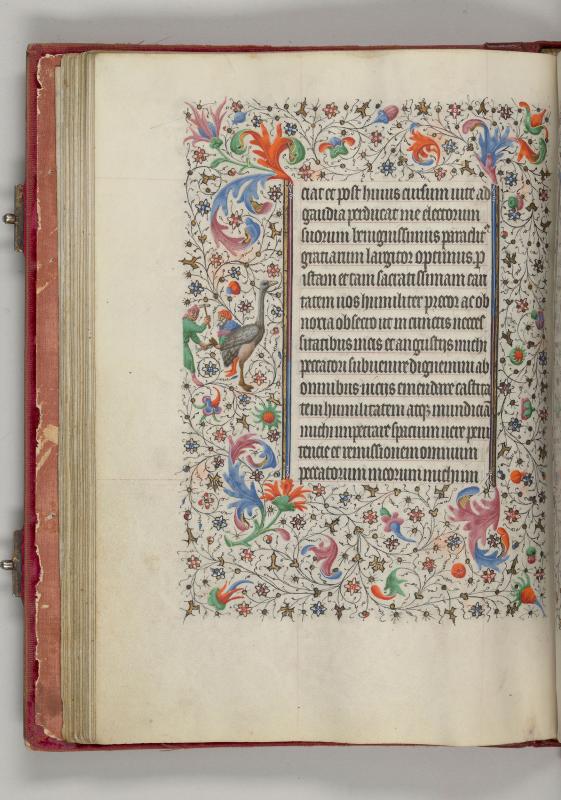 ciat et post huius cursum vite ad
gaudia perducat me electorum
suorum benignissimus paraclit'
gratiarum largitor optimus. P
istam et tam sacratissimam cari
tatem vos humiliter precor ac ob
noxia obsecro ut in cunctis neces
sitatibus meis et angustijs michi
peccatori subvenire dignemini ab
omnibus vicijs emendare castita
tem humilitatem atq3 mundiciā
michi impetrare spacium vere peni
tencie et remissionem omnium
peccatorum meorum michi im